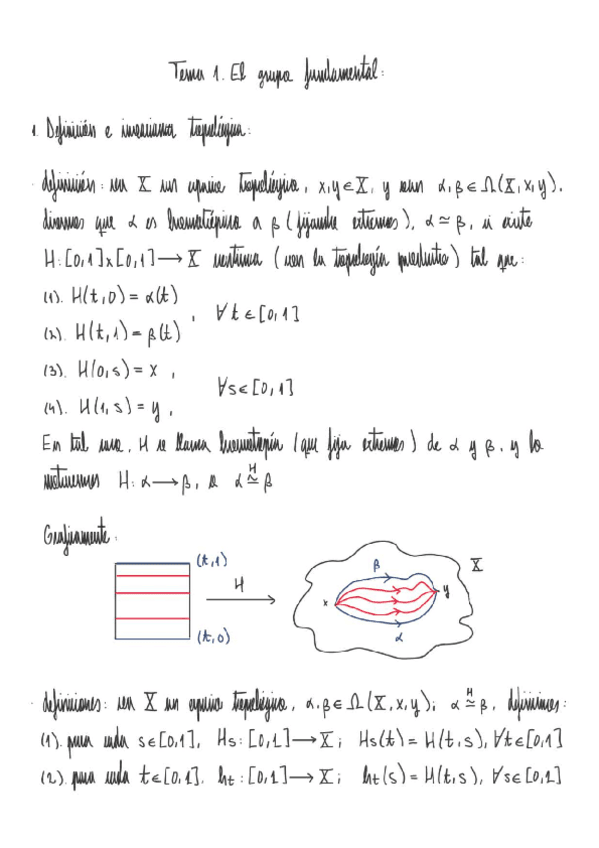 Tema 1. El grupo fundamental:
1. Definición e invarianza topológica:
· definición: sea X un espacio topológico, x,y∈X, y sean α,β∈Ω(X,x,y),
diremos que α es homotópico a β (fijando extremos), α≃β, si existe
H:[0,1]x[0,1]→X continua (con la topología producto) tal que:
(1). H(t,0)=α(t)
, ∀t∈[0,1]
(2). H(t,1)=β(t)
(3). H(0,s)=x ,
∀s∈[0,1]
(4). H(1,s)=y ,
En tal caso, H se llama homotopía (que fija extremos) de α y β, y lo
notaremos H:α→β, o α H≃ β
Graficamente:
(t,1)
H
(t,0)
β
X
x
y
α
· definiciones: sea X un espacio topológico, α,β∈Ω(X,x,y); α H≃ β, definimos:
(1). para cada s∈[0,1], Hs:[0,1]→X; Hs(t)=H(t,s),∀t∈[0,1]
(2). para cada t∈[0,1], ht:[0,1]→X; ht(s)=H(t,s), ∀s∈[0,1]